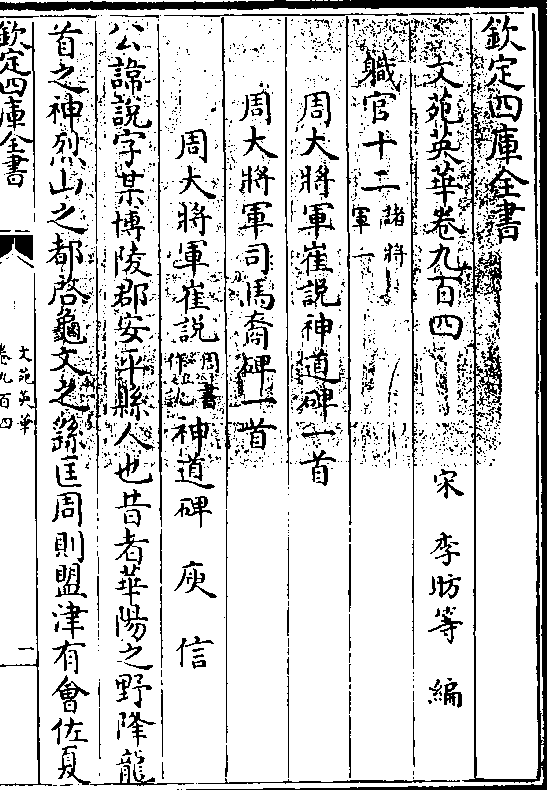 欽定四庫全書
文苑英華卷九百四
宋 李昉等 編
職官十二 諸將軍一
周大將軍崔說神道碑一首
周大將軍司馬裔碑一首
周大將軍崔說 周書作 神道碑 庾信
公諱說字某博陵郡安平縣人也昔者華陽之野降龍
首之神烈山之都啓龜文之繇匡周則盟津有會佐夏
欽定四庫全書
文苑英華
卷九百四
二